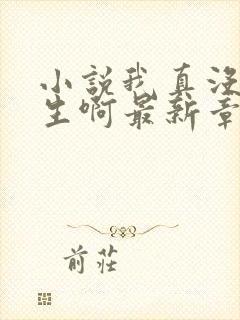 小說我真沒
生啊最新章
前莊